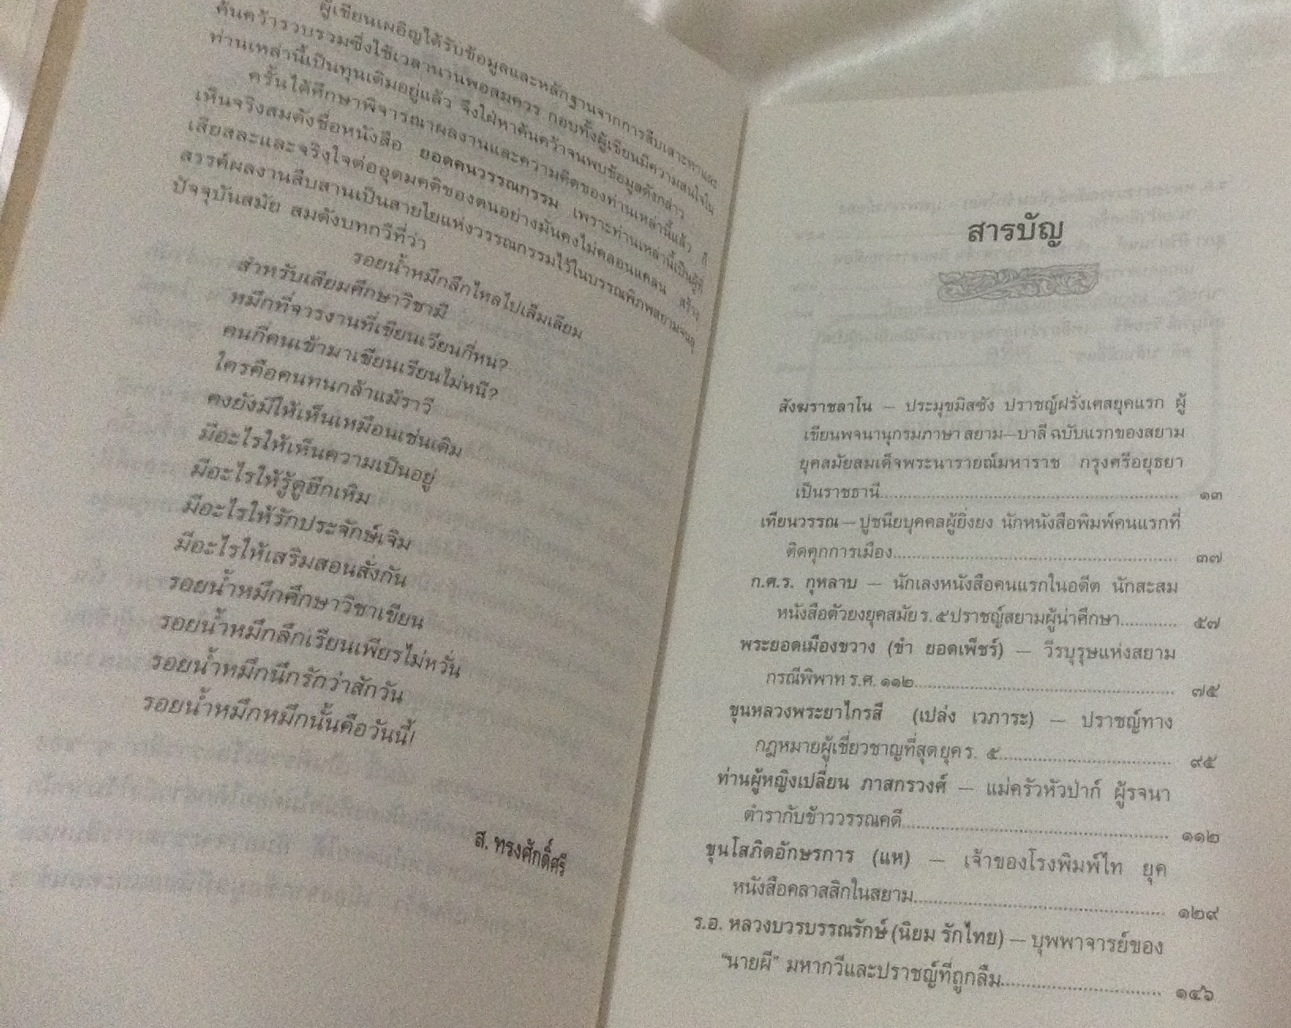 ผู้เขียนเผอิญได้รับข้อมูลและหลักฐานจากการสืบเสาะหาและ
ค้นคว้ารวบรวมซึ่งใช้เวลานานพอสมควร กอบทั้งผู้เขียนมีความสนใจใน
ท่านเหล่านี้เป็นทุนเดิมอยู่แล้ว จึงใฝ่หาค้นคว้าจนพบข้อมูลดังกล่าว
ครั้นได้ศึกษาพิจารณาผลงานและความคิดของท่านเหล่านี้แล้ว ก็
เห็นจริงสมดังชื่อหนังสือ ยอดคนวรรณกรรม เพราะท่านเหล่านี้เป็นผู้ที่
เสียสละและจริงใจต่ออุดมคติของตนอย่างมั่นคงไม่คลอนแคลน สร้าง
สรรค์ผลงานสืบสานเป็นสายใยแห่งวรรณกรรมไว้ในบรรณพิภพสยามจนยุ
ปัจจุบันสมัย สมดังบทกวีที่ว่า
รอยน้ำหมึกลึกไหลไปเล็มเลียม
สำหรับเสี้ยมศึกษาวิชามี
หมึกที่จารงานที่เขียนเรียนกี่หน?
คนกี่คนเข้ามาเขียนเรียนไม่หนี?
ใครคือคนทนกล้าแม้ราวี
คงยังมีให้เห็นเหมือนเช่นเดิม
มีอะไรให้เห็นความเป็นอยู่
มีอะไรให้รู้ดูฮึกเหิม
มีอะไรให้รักประจักษ์เจิม
มีอะไรให้เสริมสอนสั่งกัน
รอยน้ำหมึกศึกษาวิชาเขียน
รอยน้ำหมึกลึกเรียนเพียรไม่หวั่น
รอยน้ำหมึกนึกรักว่าสักวัน
รอยน้ำหมึกหมึกนั้นคือวันนี้!
ส. ทรงศักดิ์ศรี
สารบัญ
สังฆราชลาโน – ประมุขมิสซัง ปราชญ์ฝรั่งเศสยุคแรก ผู้
เขียนพจนานุกรมภาษา สยาม–บาลี ฉบับแรกของสยาม
ยุคสมัยสมเด็จพระนารายณ์มหาราช กรุงศรีอยุธยา
เป็นราชธานี.......................................... ๑๓
เทียนวรรณ – ปูชนียบุคคลผู้ยิ่งยง นักหนังสือพิมพ์คนแรกที่
ติดคุกการเมือง.......................................... ๓๗
ก.ศ.ร. กุหลาบ – นักเลงหนังสือคนแรกในอดีต นักสะสม
หนังสือตัวยงยุคสมัย ร. ๕ ปราชญ์สยามผู้น่าศึกษา.......... ๕๗
พระยอดเมืองขวาง (ขำ ยอดเพ็ชร์) – วีรบุรุษแห่งสยาม
กรณีพิพาท ร.ศ. ๑๑๒.......................................... ๗๕
ขุนหลวงพระยาไกรสี (เปล่ง เวภาระ) – ปราชญ์ทาง
กฎหมายผู้เชี่ยวชาญที่สุดยุค ร. ๕.............................. ๙๕
ท่านผู้หญิงเปลี่ยน ภาสกรวงศ์ – แม่ครัวหัวป่าก์ ผู้รจนา
ตำรากับข้าววรรณคดี.......................................... ๑๑๒
ขุนโสภิตอักษรการ (แห) – เจ้าของโรงพิมพ์ไท ยุค
หนังสือคลาสสิกในสยาม.......................................... ๑๒๙
ร.อ. หลวงบวรบรรณรักษ์ (นิยม รักไทย) – บุพพาจารย์ของ
"นายผี" มหากวีและปราชญ์ที่ถูกลืม.............................. ๑๔๖